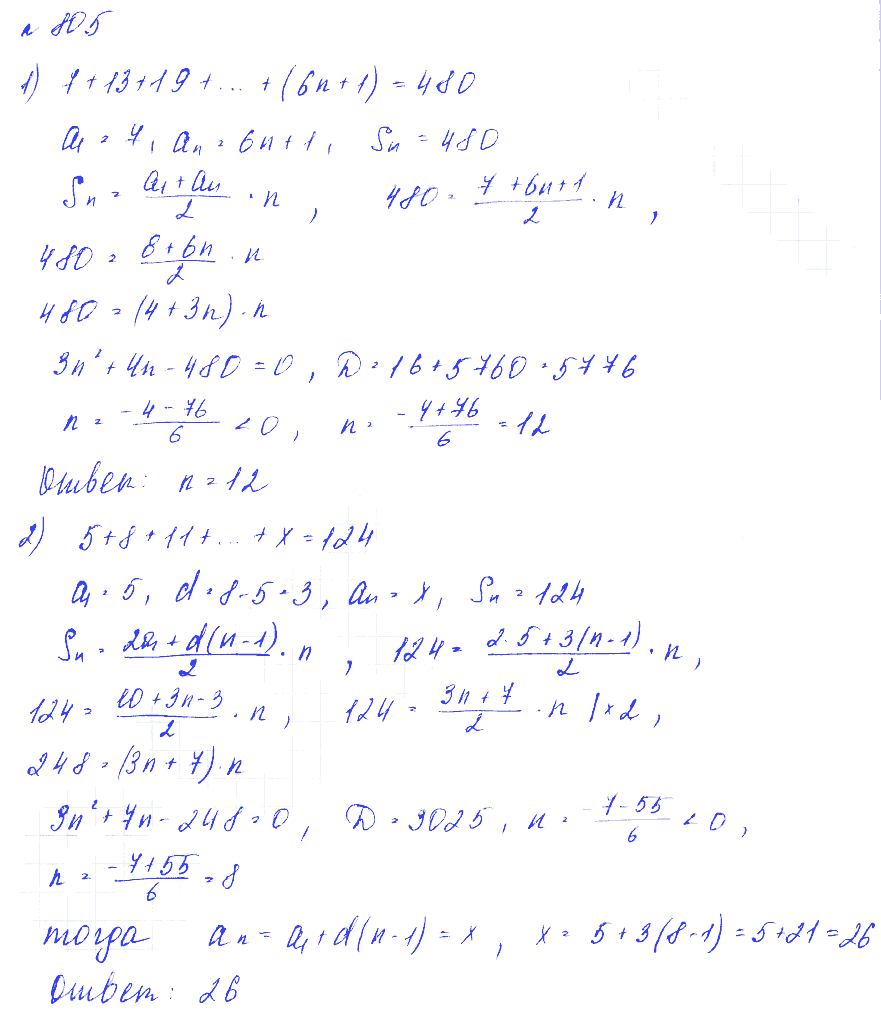 № 805
1) 7 + 13 + 19 + ... + (6n + 1) = 480
a₁ = 7, aₙ = 6n + 1, Sₙ = 480
Sₙ = (a₁ + aₙ)/2 · n, 480 = (7 + 6n + 1)/2 · n,
480 = (8 + 6n)/2 · n
480 = (4 + 3n) · n
3n² + 4n - 480 = 0, D = 16 + 5760 = 5776
n = (-4 - 76)/6 < 0, n = (-4 + 76)/6 = 12
Ответ: n = 12
2) 5 + 8 + 11 + ... + x = 124
a₁ = 5, d = 8 - 5 = 3, aₙ = x, Sₙ = 124
Sₙ = (2a₁ + d(n - 1))/2 · n, 124 = (2·5 + 3(n - 1))/2 · n,
124 = (10 + 3n - 3)/2 · n, 124 = (3n + 7)/2 · n |×2,
248 = (3n + 7) · n
3n² + 7n - 248 = 0, D = 3025, n = (-7 - 55)/6 < 0,
n = (-7 + 55)/6 = 8
тогда aₙ = a₁ + d(n - 1) = x, x = 5 + 3(8 - 1) = 5 + 21 = 26
Ответ: 26